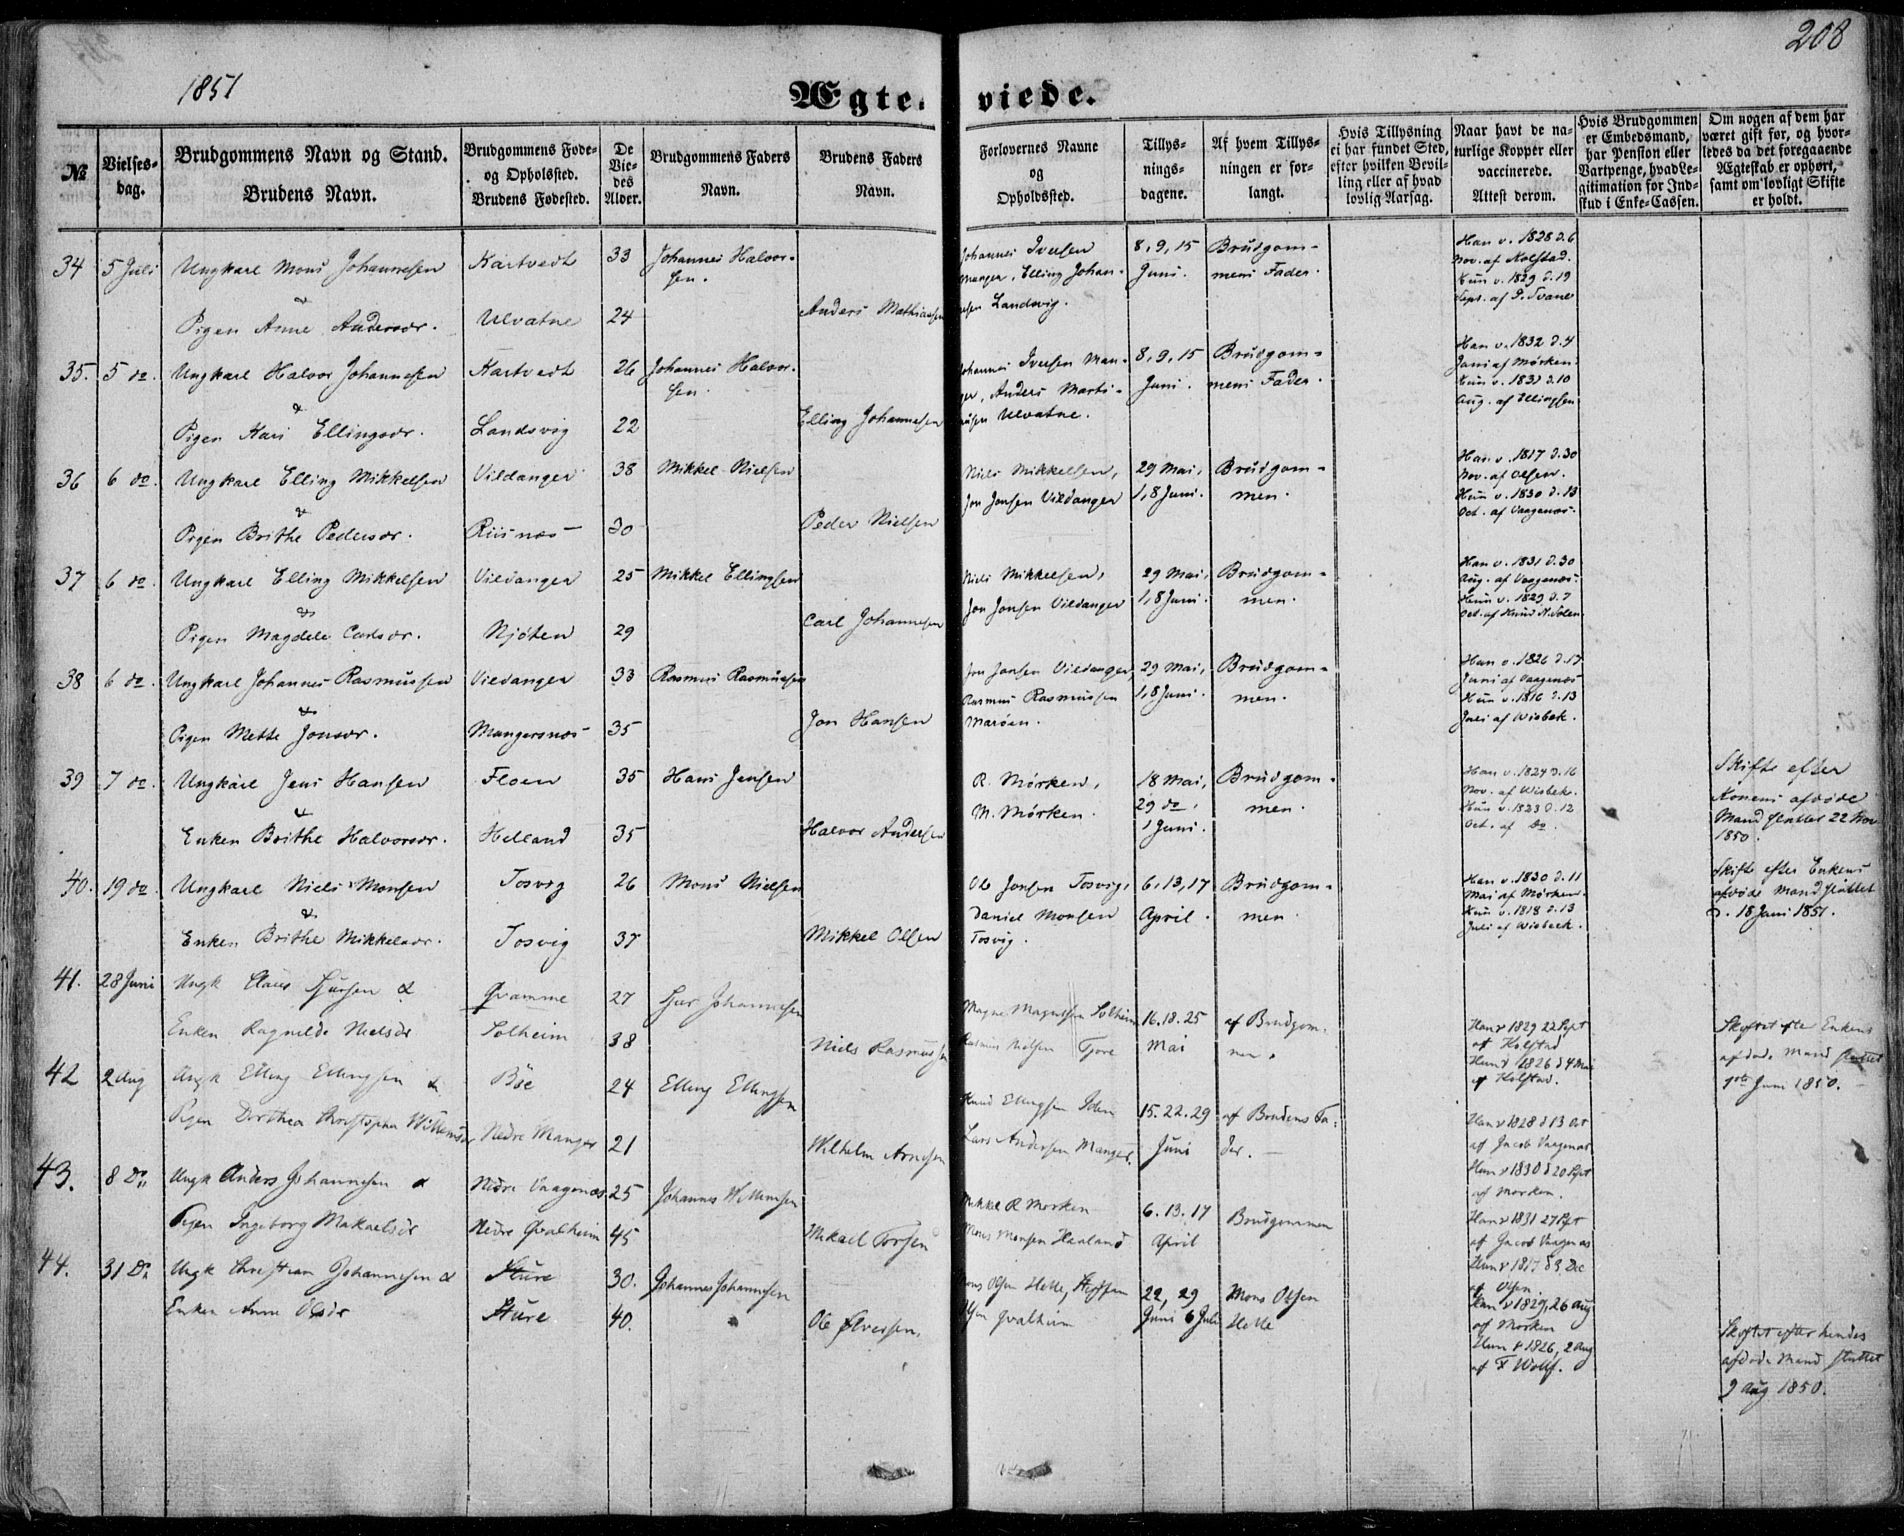 1851
208
Ægte-viede.
№
Vielses-dag.
Brudgommens Navn og Stand.
Brudens Navn.
Brudgommens Føde-
og Opholdssted.
Brudens Fødested.
De
Vie-
des
Alder.
Brudgommens Faders
Navn.
Brudens Faders
Navn.
Forlovernes Navne
og
Opholdssted.
Tillys-
nings-
dagene.
Af hvem Tillys-
ningen er for-
langt.
Hvis Tillysning
ei har fundet Sted,
efter hvilken Bevil-
ling eller af hvad
lovlig Aarsag.
Naar havt de na-
turlige Kopper eller
vaccinerede.
Attest derom.
Hvis Brudgommen
er Embedsmand,
har Pension eller
Vartpenge, hvad Le-
gitimation for Ind-
skud i Enke-Cassen.
Om nogen af dem har
været gift før, og hvor-
ledes da det foregaaende
Ægteskab er ophørt,
samt om lovligt Skifte
er holdt.
34 5 Juli Ungkarl Mons Johannesen Kartvedt 33 Johannes Halvor-
sen.
&
Pigen Anne Andersdr. Ulvatne 24 Anders Mathiasen
Johannes Iversen
Manger, Elling Johan-
nesen Landsvig.
8, 9, 15
Juni.
Brudgom-
mens Fader.
Han v. 1828 d. 6
Nov. af Kolstad.
Hun v. 1829 d. 19
Sept. af P. Tvane
35. 5 do. Ungkarl Halvor Johannesen Kartvedt 26 Johannes Halvor-
sen.
&
Pigen Kari Ellingsdr. Landsvig 22 Elling Johannesen
Johannes Iversen Man-
ger, Anders Marti-
nusen Ulvatne.
8, 9, 15
Juni.
Brudgom-
mens Fader.
Han v. 1832 d. 4
Juni af Mørken.
Hun v. 1831 d. 10
Aug. af Ellingsen
36 6 do. Ungkarl Elling Mikkelsen Vildanger 38 Mikkel Nielsen
&
Pigen Brithe Pedersdr. Riisnæs 30 Peder Nielsen
Niels Mikkelsen,
Jon Jonsen Vildanger
29 Mai,
1, 8 Juni.
Brudgom-
men.
Han v. 1817 d. 30
Nov. af Olsen.
Hun v. 1830 d. 13
Oct. af Vaagenæs.
37 6 do. Ungkarl Elling Mikkelsen Vildanger 25 Mikkel Ellingsen
&
Pigen Magdele Carlsdr. Njøten 29 Carl Johannesen
Niels Mikkelsen,
Jon Jonsen Vildanger
29 Mai,
1, 8 Juni.
Brudgom-
men.
Han v. 1831 d. 30
Aug. af Vaagenæs.
Hun v. 1829 d. 7
Oct. af Knud N. Solen
38 6 do. Ungkarl Johannes Rasmussen Vildanger 33 Rasmus Rasmussen
&
Pigen Mette Jonsdr. Mangersnæs 35 Jon Hansen
Jon Jonsen Vildanger,
Rasmus Rasmussen
Marøen.
29 Mai,
1, 8 Juni.
Brudgom-
men.
Han v. 1826 d. 17
Juni af Vaagenæs
Hun v. 1816 d. 13
Juli af Wisbek.
39 7 do. Ungkarl Jens Hansen Floen 35 Hans Jensen
&
Enken Brithe Halvorsdr. Helland 35 Halvor Andersen
R. Mørken,
M. Mørken.
18 Mai,
29 do,
1 Juni.
Brudgom-
men.
Han v. 1824 d. 16
Nov. af Wisbek.
Hun v. 1823 d. 12
Oct. af do.
Skifte efter
Konens afdøde
Mand sluttet 22 Nov
1850.
40. 19 do Ungkarl Niels Monsen Tosvig 26 Mons Nielsen
&
Enken Brithe Mikkelsdr. Tosvig 37 Mikkel Olsen
Ole Jonsen Tosvig,
Daniel Monsen
Tosvig.
6, 13, 17
April.
Brudgom-
men.
Han v. 1830 d. 11
Mai af Mørken.
Hun v. 1818 d. 13
Juli af Wisbeck.
Skifte efter Enkens
afdøde Mand sluttet
d. 18 Juni 1851.
41. 28 Juni Ungk Claus Sjursen & Qvamme 27 Sjur Johannesen
Enken Ragnilde Nielsdr Solheim 38 Niels Rasmussen
Magne Magnesen Solheim
Rasmus Nielsen Fjøre
16. 18. 25
Mai
af Brudgom-
men.
Han v 1829 22 Sept
af Kolstad
Hun v 1826 d 4 Mai
af Kolstad.
Skiftet efter Enkens
afdøde Mand sluttet
1ste Juni 1850.
42 2 Aug Ungk Elling Ellingsen & Bøe 24 Elling Ellingsen
Pigen Dorthea Christopha Willemsdr Nedre Manger 21 Wilhelm Arnesen
Knud Ellingsen Solen
Lars Andersen Manger.
15. 22. 29
Juni
af Brudens Fa-
der.
Han v 1828 d 13 Oct
af Jacob Vaagenæs
Hun v 1830 d 20 Sept
af Mørken.
43. 8 Do Ungk Anders Johannesen & Nedre Vaagenæs 25 Johannes Willemsen
Pigen Ingeborg Mikaelsdr Nedre Qvalheim 45 Mikael Torsen
Mikkel R Mørken
Mons Monsen Haaland
6. 13. 17
April
Brudgommen
Han v 1831 27 Sept
af Jacob Vaagenæs
Hun v 1817 d 3 Dec
af Olsen.
44. 31 Do Ungk Christian Johannesen & Sture 30. Johannes Johannesen
Enken Anne Olsdr Sture 40. Ole Elversen.
Mons Olsen Helle, Steffen
Olsen Qvalheim
22, 29
Juni 6 Juli
Mons Olsen
Helle
Han v 1829, 26 Aug
af Mørken
Hun v 1826, 2 Aug
af F Wolff.
Skiftet efter hendes
afdøde Mand sluttet
9 Aug 1850.